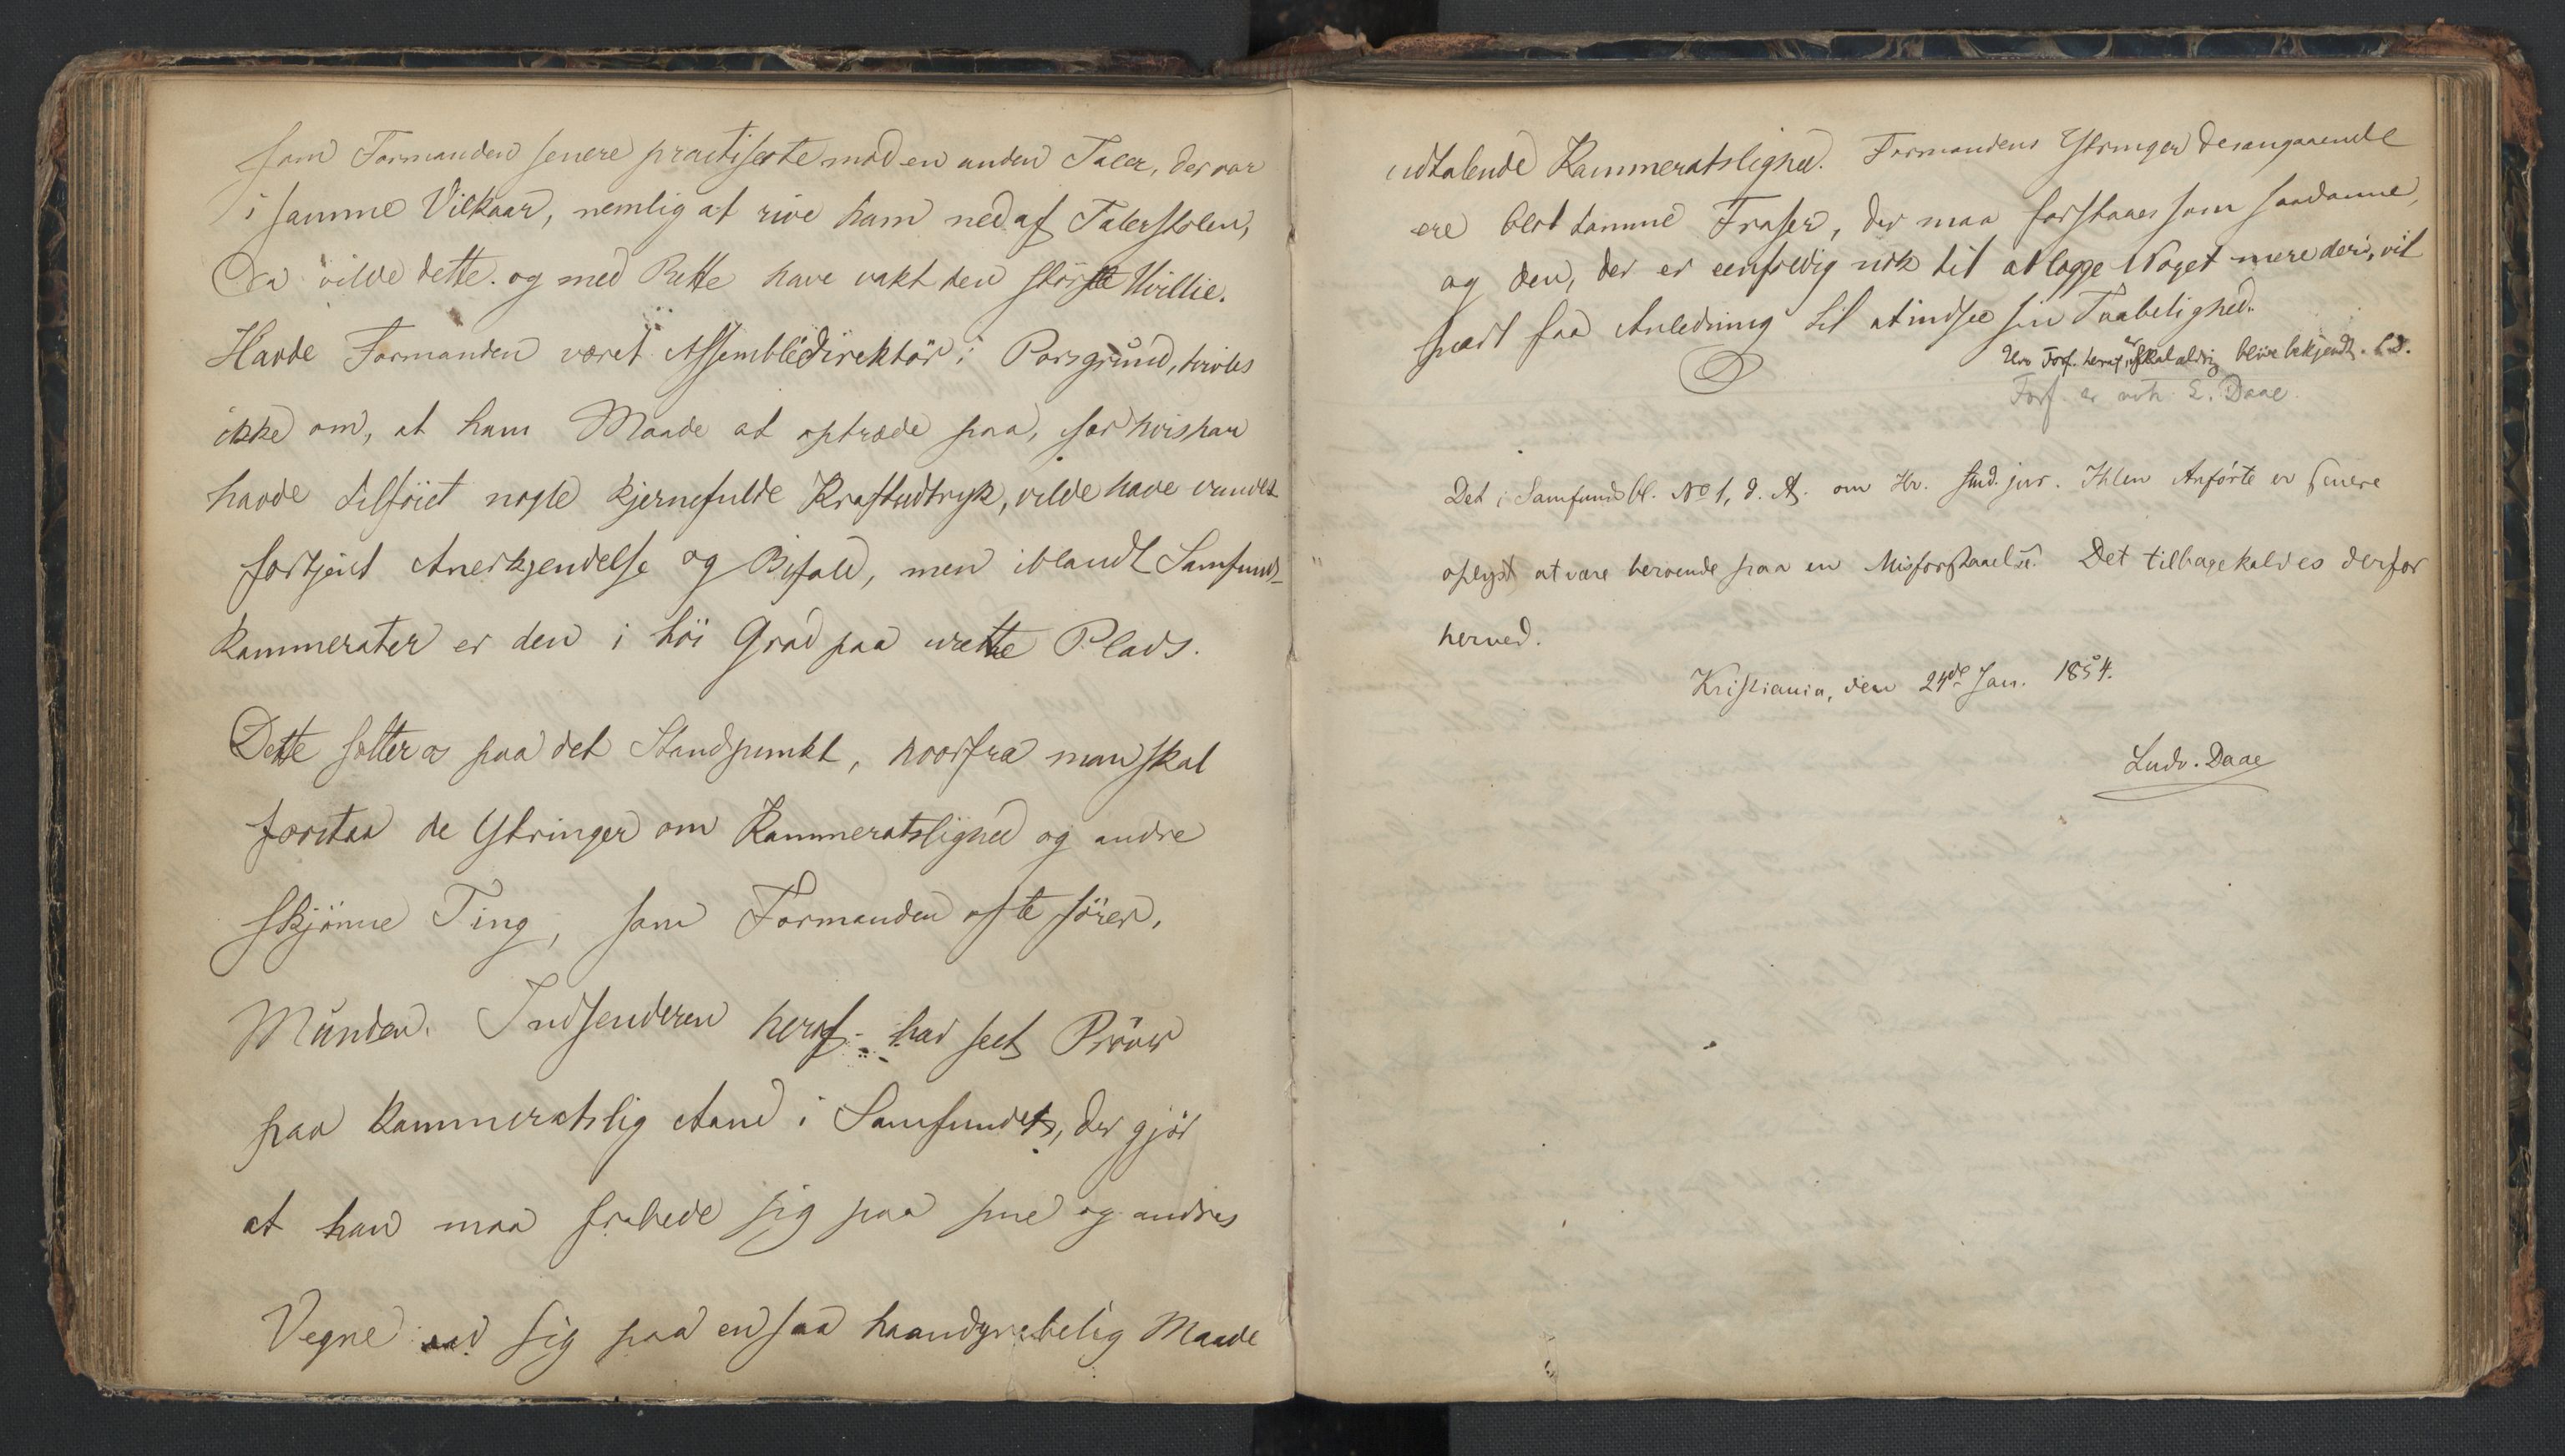 som Formanden senere practiserte mod en anden Taler, der var
i samme Vilkaar, nemlig at rive ham ned af Talerstolen,
Da vilde dette og med Rette have vakt den störste Uvillie.
Havde Formanden været Assemblédirektör i Porsgrund, tvivles
ikke om, at hans Maade at optræde paa, især hvis han
havde tilföiet nogle kjernefulde Kraftudtryk, vilde have vundet
fortjent Anerkjendelse og Bifald, men iblandt Samfunds-
kammerater er den i höi Grad paa urette Plads.
Dette sætter os paa det Standpunkt, hvorfra man skal
forstaa de Ytringer om Kammeratslighed og andre
skjönne Ting, som Formanden ofte förer.
Munden. Indsenderen heraf har seet Pröver
paa kammeratslig Aand i Samfundet, der gjör
at han maa frabede sig paa sine og andres
Vegne sig paa en saa haandgribelig Maade
udtalende Kammeratslighed. Formandens Ytringer desangaaende
ere blot tomme Fraser, der maa forstaaes som saadanne,
og den, der er eenfoldig nok til at lægge Noget mere deri, vil
snart faa Anledning til at indsee sin Taabelighed.
Hvo Forf. heraf er, skal aldrig blive bekjendt. L.D.
Forf. er L. Daae.
Det i Samfundsbl. No 1, d. A. om Hr. stud. jur. Ihlen Anförte er senere
oplyst at være beroende paa en Misforstaaelse. Det tilbagekaldes derfor
herved.
Kristiania, den 24de Jan. 1854.
Ludv. Daae